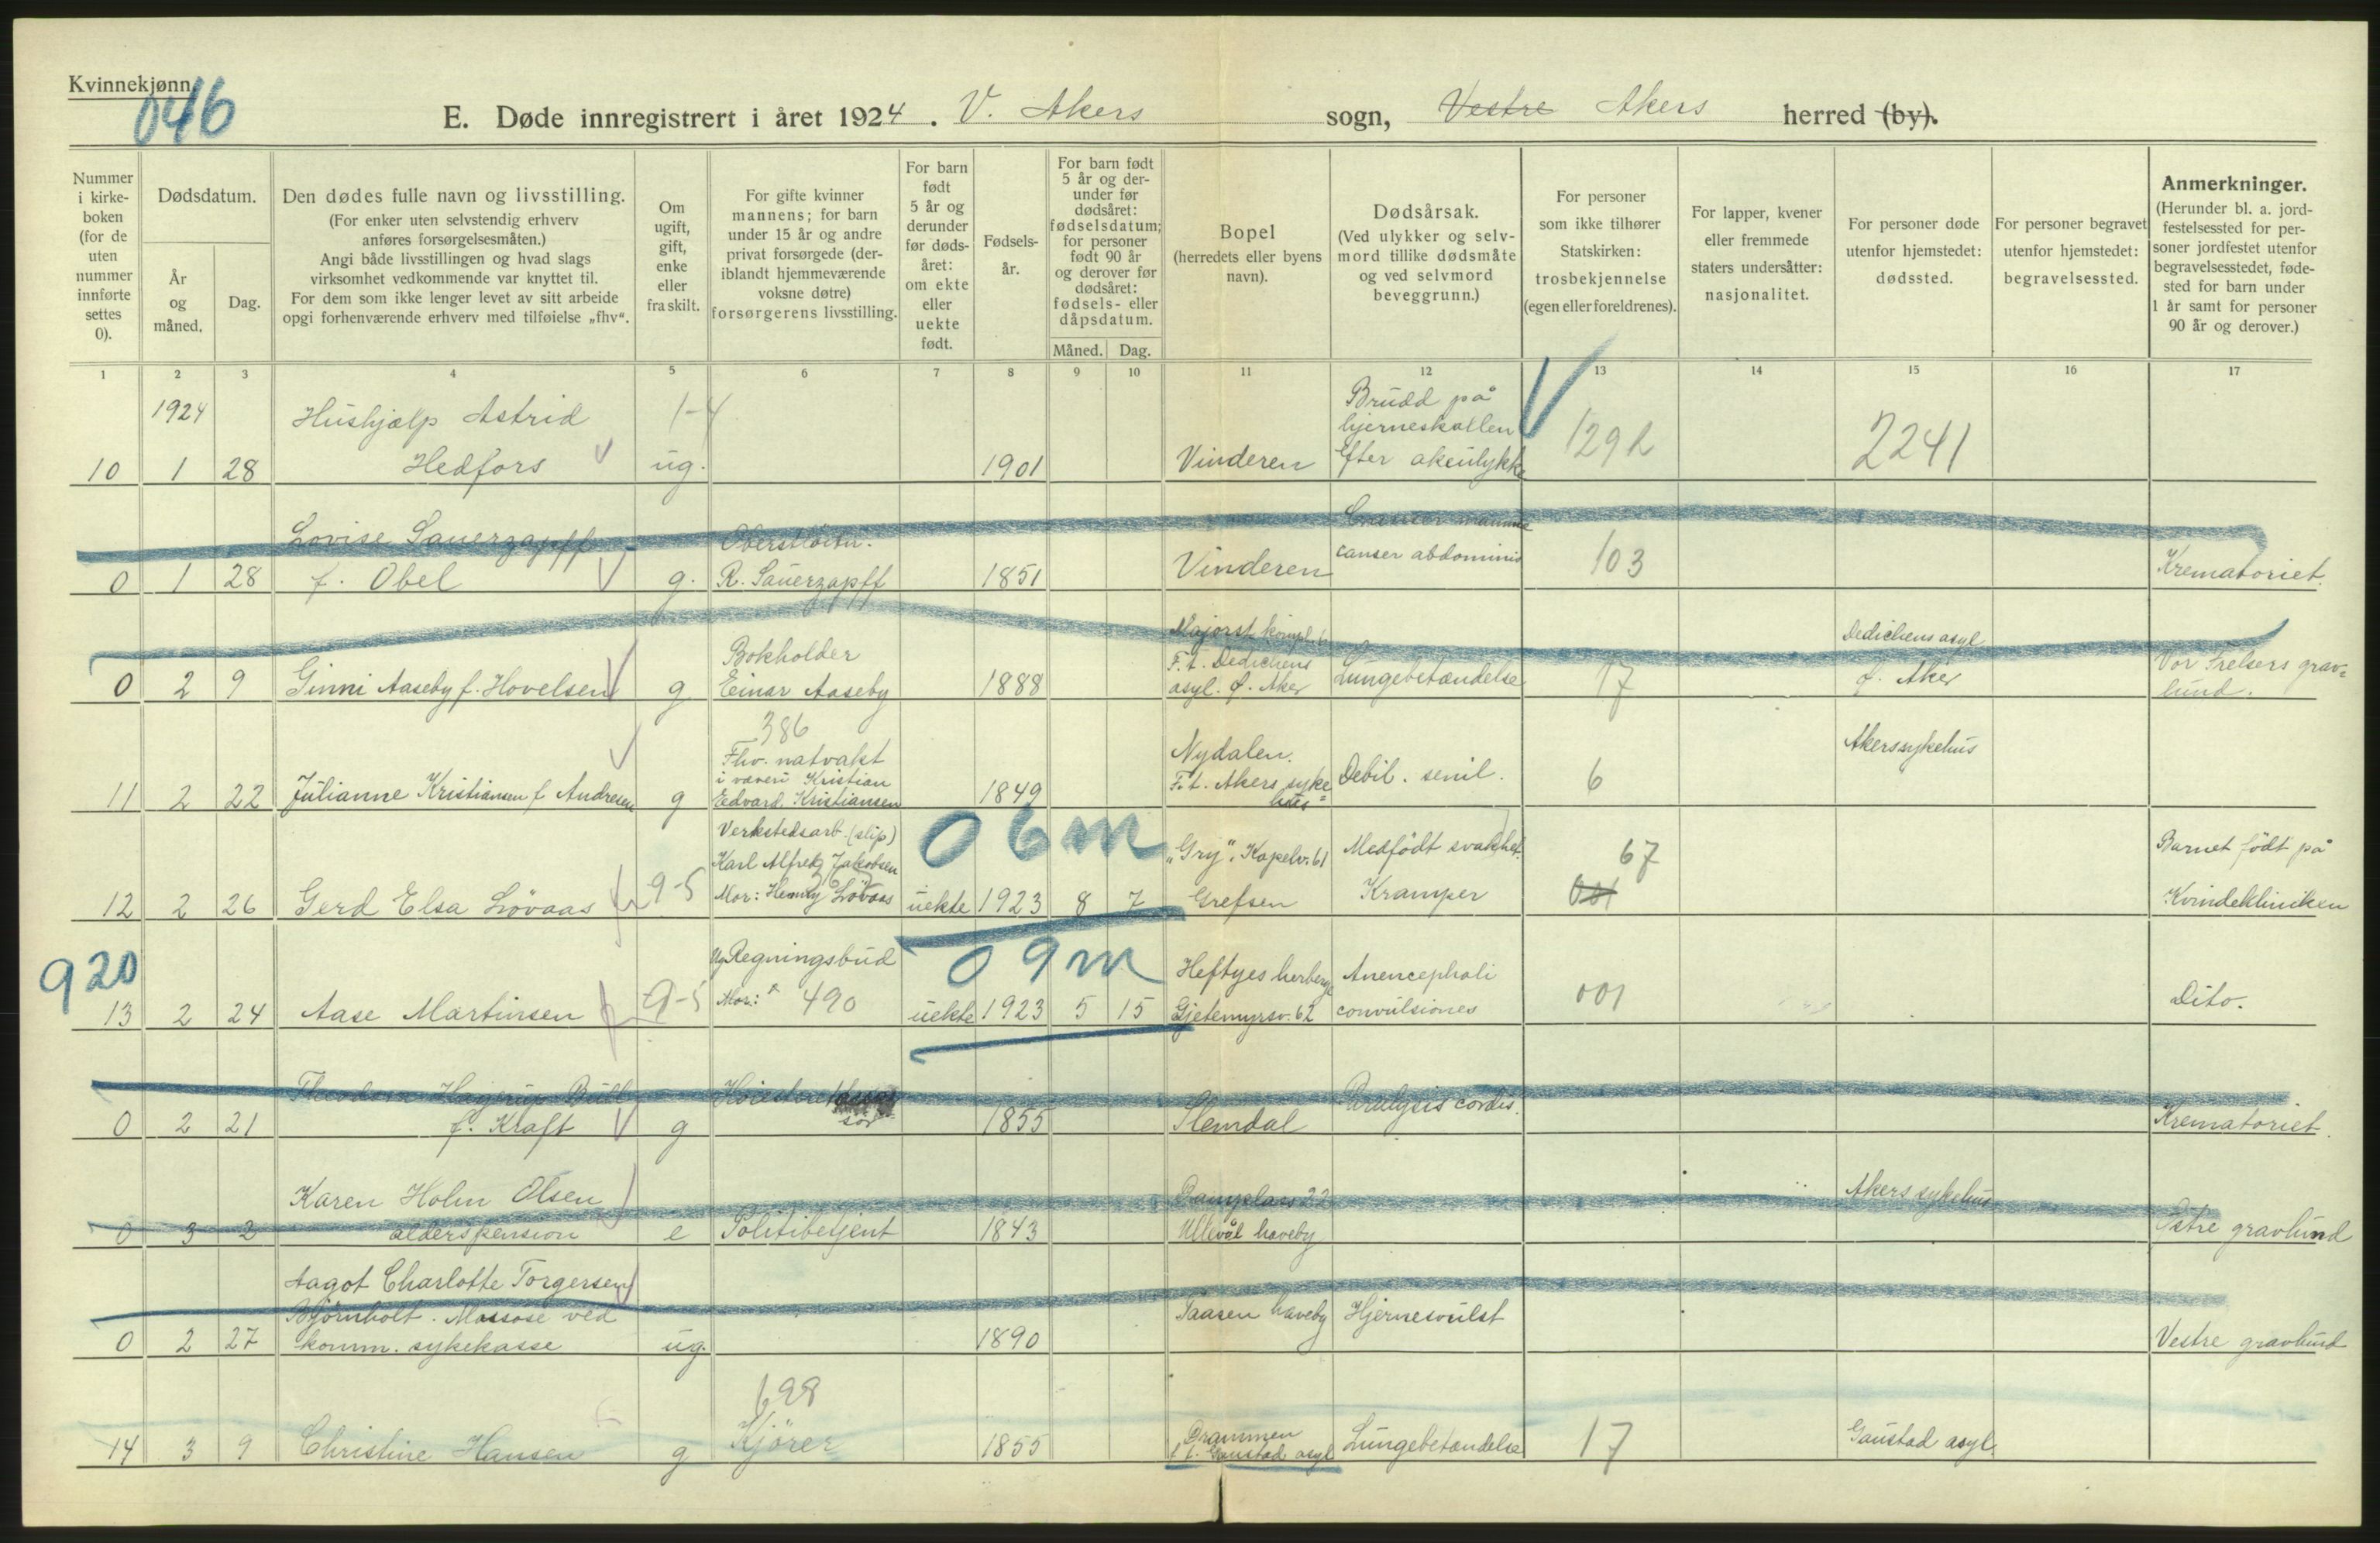 Kvinnekjønn.
046
E. Døde innregistrert i året 1924. V. Akers sogn, Vestre Akers herred (by).
Nummer i kirke-boken (for de uten nummer innførte settes 0).
Dødsdatum.
År og måned.
Dag.
Den dødes fulle navn og livsstilling.
(For enker uten selvstendig erhverv anføres forsørgelsesmåten.)
Angi både livsstillingen og hvad slags virksomhet vedkommende var knyttet til.
For dem som ikke lenger levet av sitt arbeide opgi forhenværende erhverv med tilføielse „fhv“.
Om ugift, gift, enke eller fraskilt.
For gifte kvinner mannens; for barn under 15 år og andre privat forsørgede (deriblandt hjemmeværende voksne døtre) forsørgerens livsstilling.
For barn født 5 år og derunder før døds-året: om ekte eller uekte født.
Fødsels-år.
For barn født 5 år og der-under før dødsåret: fødselsdatum; for personer født 90 år og derover før dødsåret: fødsels- eller dåpsdatum.
Måned. Dag.
Bopel
(herredets eller byens navn).
Dødsårsak.
(Ved ulykker og selv-mord tillike dødsmåte og ved selvmord beveggrunn.)
For personer som ikke tilhører Statskirken: trosbekjennelse (egen eller foreldrenes).
For lapper, kvener eller fremmede staters undersåtter: nasjonalitet.
For personer døde utenfor hjemstedet: dødssted.
For personer begravet utenfor hjemstedet: begravelsessted.
Anmerkninger.
(Herunder bl. a. jord-festelsessted for per-soner jordfestet utenfor begravelsesstedet, føde-sted for barn under 1 år samt for personer 90 år og derover.)
1 2 3 4 5 6 7 8 9 10 11 12 13 14 15 16 17
1924 Hushjælp Astrid 1-4 Brudd på
hjerneskallen 1292 2241
10 1 28 Hedfors ug. 1901 Vinderen efter akeulykke
Lovise Sauerzapff Oberstløitn. Cancer mamme
canser abdominis 103
0 1 28 f. Obel g. R. Sauerzapff 1851 Vinderen Krematoriet.
Majorst. kompl. 6 Dedichens asyl
Bokholder F. t. Dedichens Vor Frelsers grav=
0 2 9 Ginni Aaseby f. Hovelsen g Einar Aaseby 1888 asyl. Ø. Aker Lungebetændelse 17 Ø. Aker lund.
386
Fhv. natvakt Nydalen. Akers sykehus
i væveri Kristian
11 2 22 Julianne Kristiansen f. Andresen g Edvard Kristiansen 1849 F.t. Akers syke=hus Debil. senil. 6
Verkstedsarb. (slip) 06m
Karl Alfred Jakobsen „Gry“, Kapelv. 61 Medfödt svakhet. 67 Barnet födt på
12 2 26 Gerd Elsa Lövaas 9-5 Mor: Henny Lövaas uekte 1923 8 7 Grefsen Kramper 001 Kvindeklinikken
920 Ug Regningsbud 09m Heftyes herberge Anencephali
13 2 24 Aase Martinsen 9-5 Mor: 490 uekte 1923 5 15 Gjetemyrsv. 62 convulsiones 001 Dito.
Theodora Hagerup Bull Høiesteret Paralysis cordis.
0 2 21 f. Kraft g 1855 Slemdal Krematoriet.
Karen Holm Olsen Damplass 22 Akers sykehus
0 3 2 alderspension e Politibetjent 1843 Ullevål haveby Østre gravlund
Aagot Charlotte Torgersen
Bjørnholt. Massøse ved Taasen haveby Hjernesvulst
0 2 27 komm. sykekasse ug. 1890 Vestre gravlund
698
Drammen
14 3 9 Christine Hansen g Kjörer 1855 f. t. Gaustad asyl Lungebetændelse 17 Gaustad asyl.